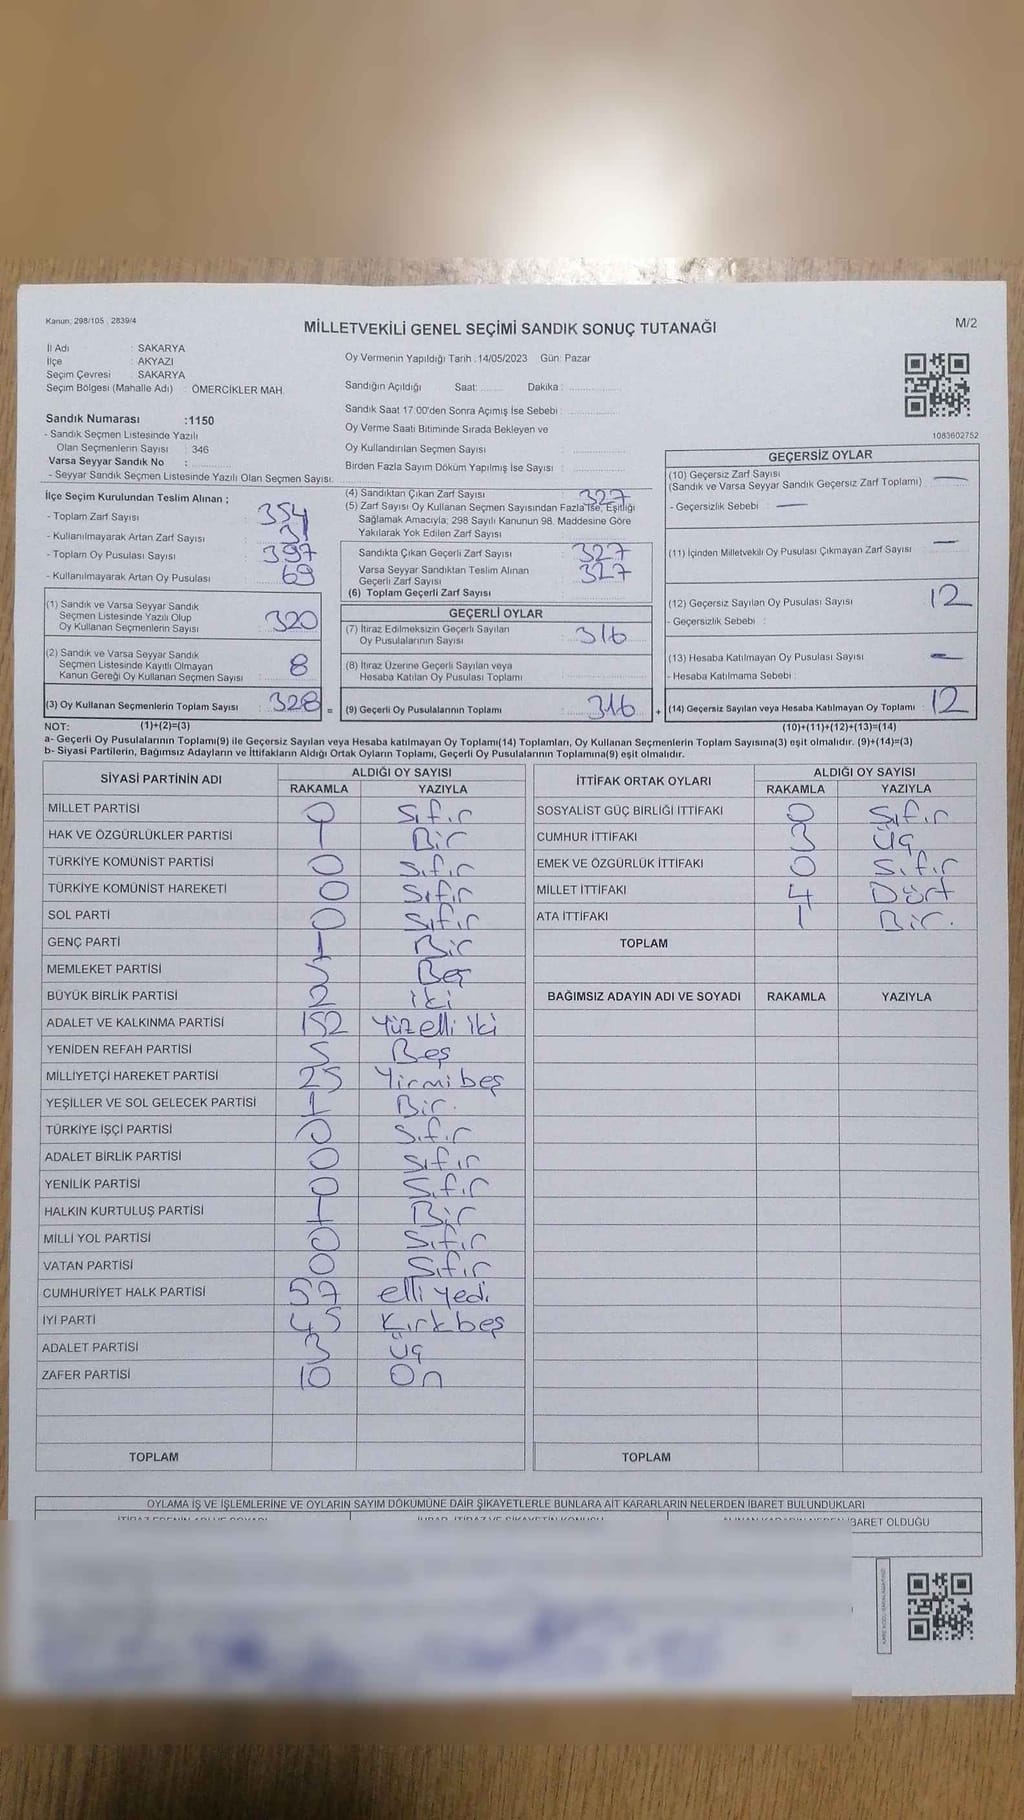 Kanun; 298/105 , 2839/4
MİLLETVEKİLİ GENEL SEÇİMİ SANDIK SONUÇ TUTANAĞI
M/2
İl Adı : SAKARYA
İlçe : AKYAZI
Seçim Çevresi : SAKARYA
Seçim Bölgesi (Mahalle Adı) : ÖMERCİKLER MAH.
Sandık Numarası :1150
- Sandık Seçmen Listesinde Yazılı
Olan Seçmenlerin Sayısı : 346
Varsa Seyyar Sandık No :
- Seyyar Sandık Seçmen Listesinde Yazılı Olan Seçmen Sayısı:
Oy Vermenin Yapıldığı Tarih :14/05/2023 Gün: Pazar
Sandığın Açıldığı Saat: Dakika :
Sandık Saat 17:00'den Sonra Açımış İse Sebebi :
Oy Verme Saati Bitiminde Sırada Bekleyen ve
Oy Kullandırılan Seçmen Sayısı :
Birden Fazla Sayım Döküm Yapılmış İse Sayısı :
1083602752
İlçe Seçim Kurulundan Teslim Alınan ;
- Toplam Zarf Sayısı : 354
- Kullanılmayarak Artan Zarf Sayısı : 31
- Toplam Oy Pusulası Sayısı : 397
- Kullanılmayarak Artan Oy Pusulası : 69
(1) Sandık ve Varsa Seyyar Sandık
Seçmen Listesinde Yazılı Olup
Oy Kullanan Seçmenlerin Sayısı : 320
(2) Sandık ve Varsa Seyyar Sandık
Seçmen Listesinde Kayıtlı Olmayan
Kanun Gereği Oy Kullanan Seçmen Sayısı : 8
(3) Oy Kullanan Seçmenlerin Toplam Sayısı : 328 =
(4) Sandıktan Çıkan Zarf Sayısı : 327
(5) Zarf Sayısı Oy Kullanan Seçmen Sayısından Fazla İse, Eşitliği
Sağlamak Amacıyla; 298 Sayılı Kanunun 98. Maddesine Göre
Yakılarak Yok Edilen Zarf Sayısı :
Sandıkta Çıkan Geçerli Zarf Sayısı : 327
Varsa Seyyar Sandıktan Teslim Alınan
Geçerli Zarf Sayısı : 327
(6) Toplam Geçerli Zarf Sayısı :
GEÇERLİ OYLAR
(7) İtiraz Edilmeksizin Geçerli Sayılan
Oy Pusulalarının Sayısı : 316
(8) İtiraz Üzerine Geçerli Sayılan veya
Hesaba Katılan Oy Pusulası Toplamı :
(9) Geçerli Oy Pusulalarının Toplamı : 316 +
GEÇERSİZ OYLAR
(10) Geçersiz Zarf Sayısı
(Sandık ve Varsa Seyyar Sandık Geçersiz Zarf Toplamı) : —
- Geçersizlik Sebebi : —
(11) İçinden Milletvekili Oy Pusulası Çıkmayan Zarf Sayısı : —
(12) Geçersiz Sayılan Oy Pusulası Sayısı : 12
- Geçersizlik Sebebi :
(13) Hesaba Katılmayan Oy Pusulası Sayısı : —
- Hesaba Katılmama Sebebi :
(14) Geçersiz Sayılan veya Hesaba Katılmayan Oy Toplamı : 12
NOT: (1)+(2)=(3) (10)+(11)+(12)+(13)=(14)
a- Geçerli Oy Pusulasının Toplamı(9) ile Geçersiz Sayılan veya Hesaba katılmayan Oy Toplamı(14) Toplamları, Oy Kullanan Seçmenlerin Toplam Sayısına(3) eşit olmalıdır. (9)+(14)=(3)
b- Siyasi Partilerin, Bağımsız Adayların ve İttifakların Aldığı Ortak Oyların Toplamı, Geçerli Oy Pusulalarının Toplamına(9) eşit olmalıdır.
SİYASİ PARTİNİN ADI ALDIĞI OY SAYISI
RAKAMLA YAZIYLA
MİLLET PARTİSİ 0 Sıfır
HAK VE ÖZGÜRLÜKLER PARTİSİ 1 Bir
TÜRKİYE KOMÜNİST PARTİSİ 0 Sıfır
TÜRKİYE KOMÜNİST HAREKETİ 0 Sıfır
SOL PARTİ 0 Sıfır
GENÇ PARTİ 1 Bir
MEMLEKET PARTİSİ 5 Beş
BÜYÜK BİRLİK PARTİSİ 2 iki
ADALET VE KALKINMA PARTİSİ 152 Yüzelli iki
YENİDEN REFAH PARTİSİ 5 Beş
MİLLİYETÇİ HAREKET PARTİSİ 25 Yirmibeş
YEŞİLLER VE SOL GELECEK PARTİSİ 1 Bir.
TÜRKİYE İŞÇİ PARTİSİ 0 Sıfır
ADALET BİRLİK PARTİSİ 0 Sıfır
YENİLİK PARTİSİ 0 Sıfır
HALKIN KURTULUŞ PARTİSİ 1 Bir
MİLLİ YOL PARTİSİ 0 Sıfır
VATAN PARTİSİ 0 Sıfır
CUMHURİYET HALK PARTİSİ 57 elli yedi
İYİ PARTİ 45 Kırkbeş
ADALET PARTİSİ 3 Üç
ZAFER PARTİSİ 10 On
TOPLAM
İTTİFAK ORTAK OYLARI ALDIĞI OY SAYISI
RAKAMLA YAZIYLA
SOSYALİST GÜÇ BİRLİĞİ İTTİFAKI 0 Sıfır
CUMHUR İTTİFAKI 3 Üç
EMEK VE ÖZGÜRLÜK İTTİFAKI 0 Sıfır
MİLLET İTTİFAKI 4 Dört
ATA İTTİFAKI 1 Bir.
TOPLAM
BAĞIMSIZ ADAYIN ADI VE SOYADI RAKAMLA YAZIYLA
TOPLAM
OYLAMA İŞ VE İŞLEMLERİNE VE OYLARIN SAYIM DÖKÜMÜNE DAİR ŞİKAYETLERLE BUNLARA AİT KARARLARIN NELERDEN İBARET BULUNDUKLARI
İBARET OLDUĞU